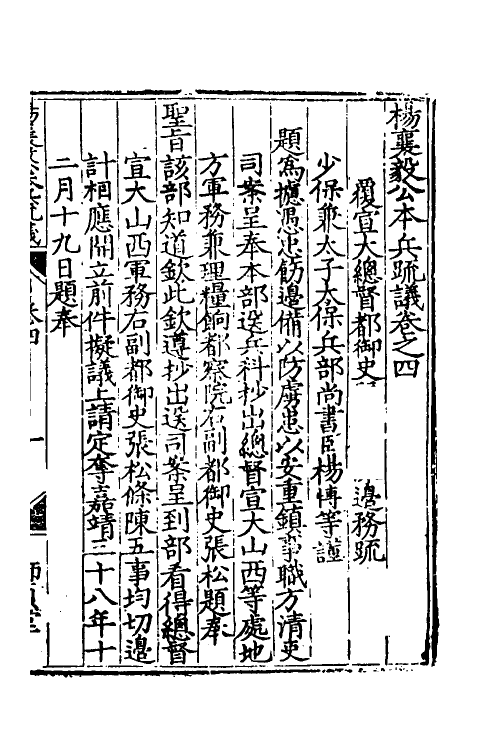 楊襄毅公本兵疏議卷之四
覆宣大總督都御史 邊務疏
少保兼太子太保兵部尚書臣楊博等謹
題為攄愚忠飭邊備以防虜患以安重鎮事職方清吏
司案呈奉本部送兵科抄出總督宣大山西等處地
方軍務兼理糧餉都察院右副都御史張松題奉
聖旨該部知道欽此欽遵抄出送司案呈到部看得總督
宣大山西軍務右副都御史張松條陳五事均切邊
計相應開立前件擬議上請定奪嘉靖三十八年十
二月十九日題奉